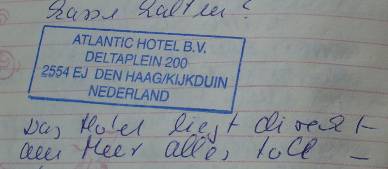 ATLANTIC HOTEL B.V.
DELTAPLEIN 200
2554 EJ DEN HAAG/KIJKDUIN
NEDERLAND
Das Hotel liegt direkt
am Meer alles toll –